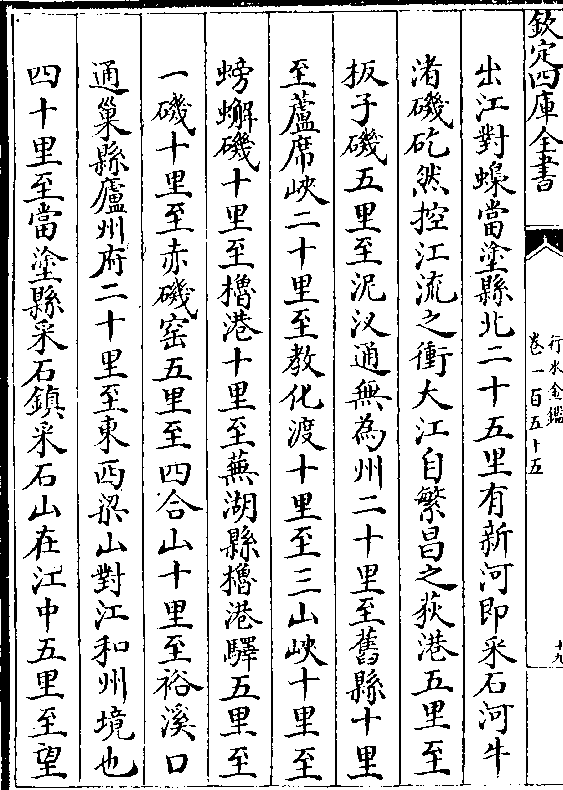 欽定四庫全書
行水金鑑
卷一百五十五
十九
出江對蟂當塗縣北二十五里有新河即采石河牛
渚磯矻然控江流之衝大江自繁昌之荻港五里至
板子磯五里至泥汊通無為州二十里至舊縣十里
至蘆席峽二十里至教化渡十里至三山峽十里至
螃蠏磯十里至擼港十里至蕪湖縣擼港驛五里至
一磯十里至赤磯窑五里至四合山十里至裕溪口
通巢縣廬州府二十里至東西梁山對江和州境也
四十里至當塗縣采石鎮采石山在江中五里至望